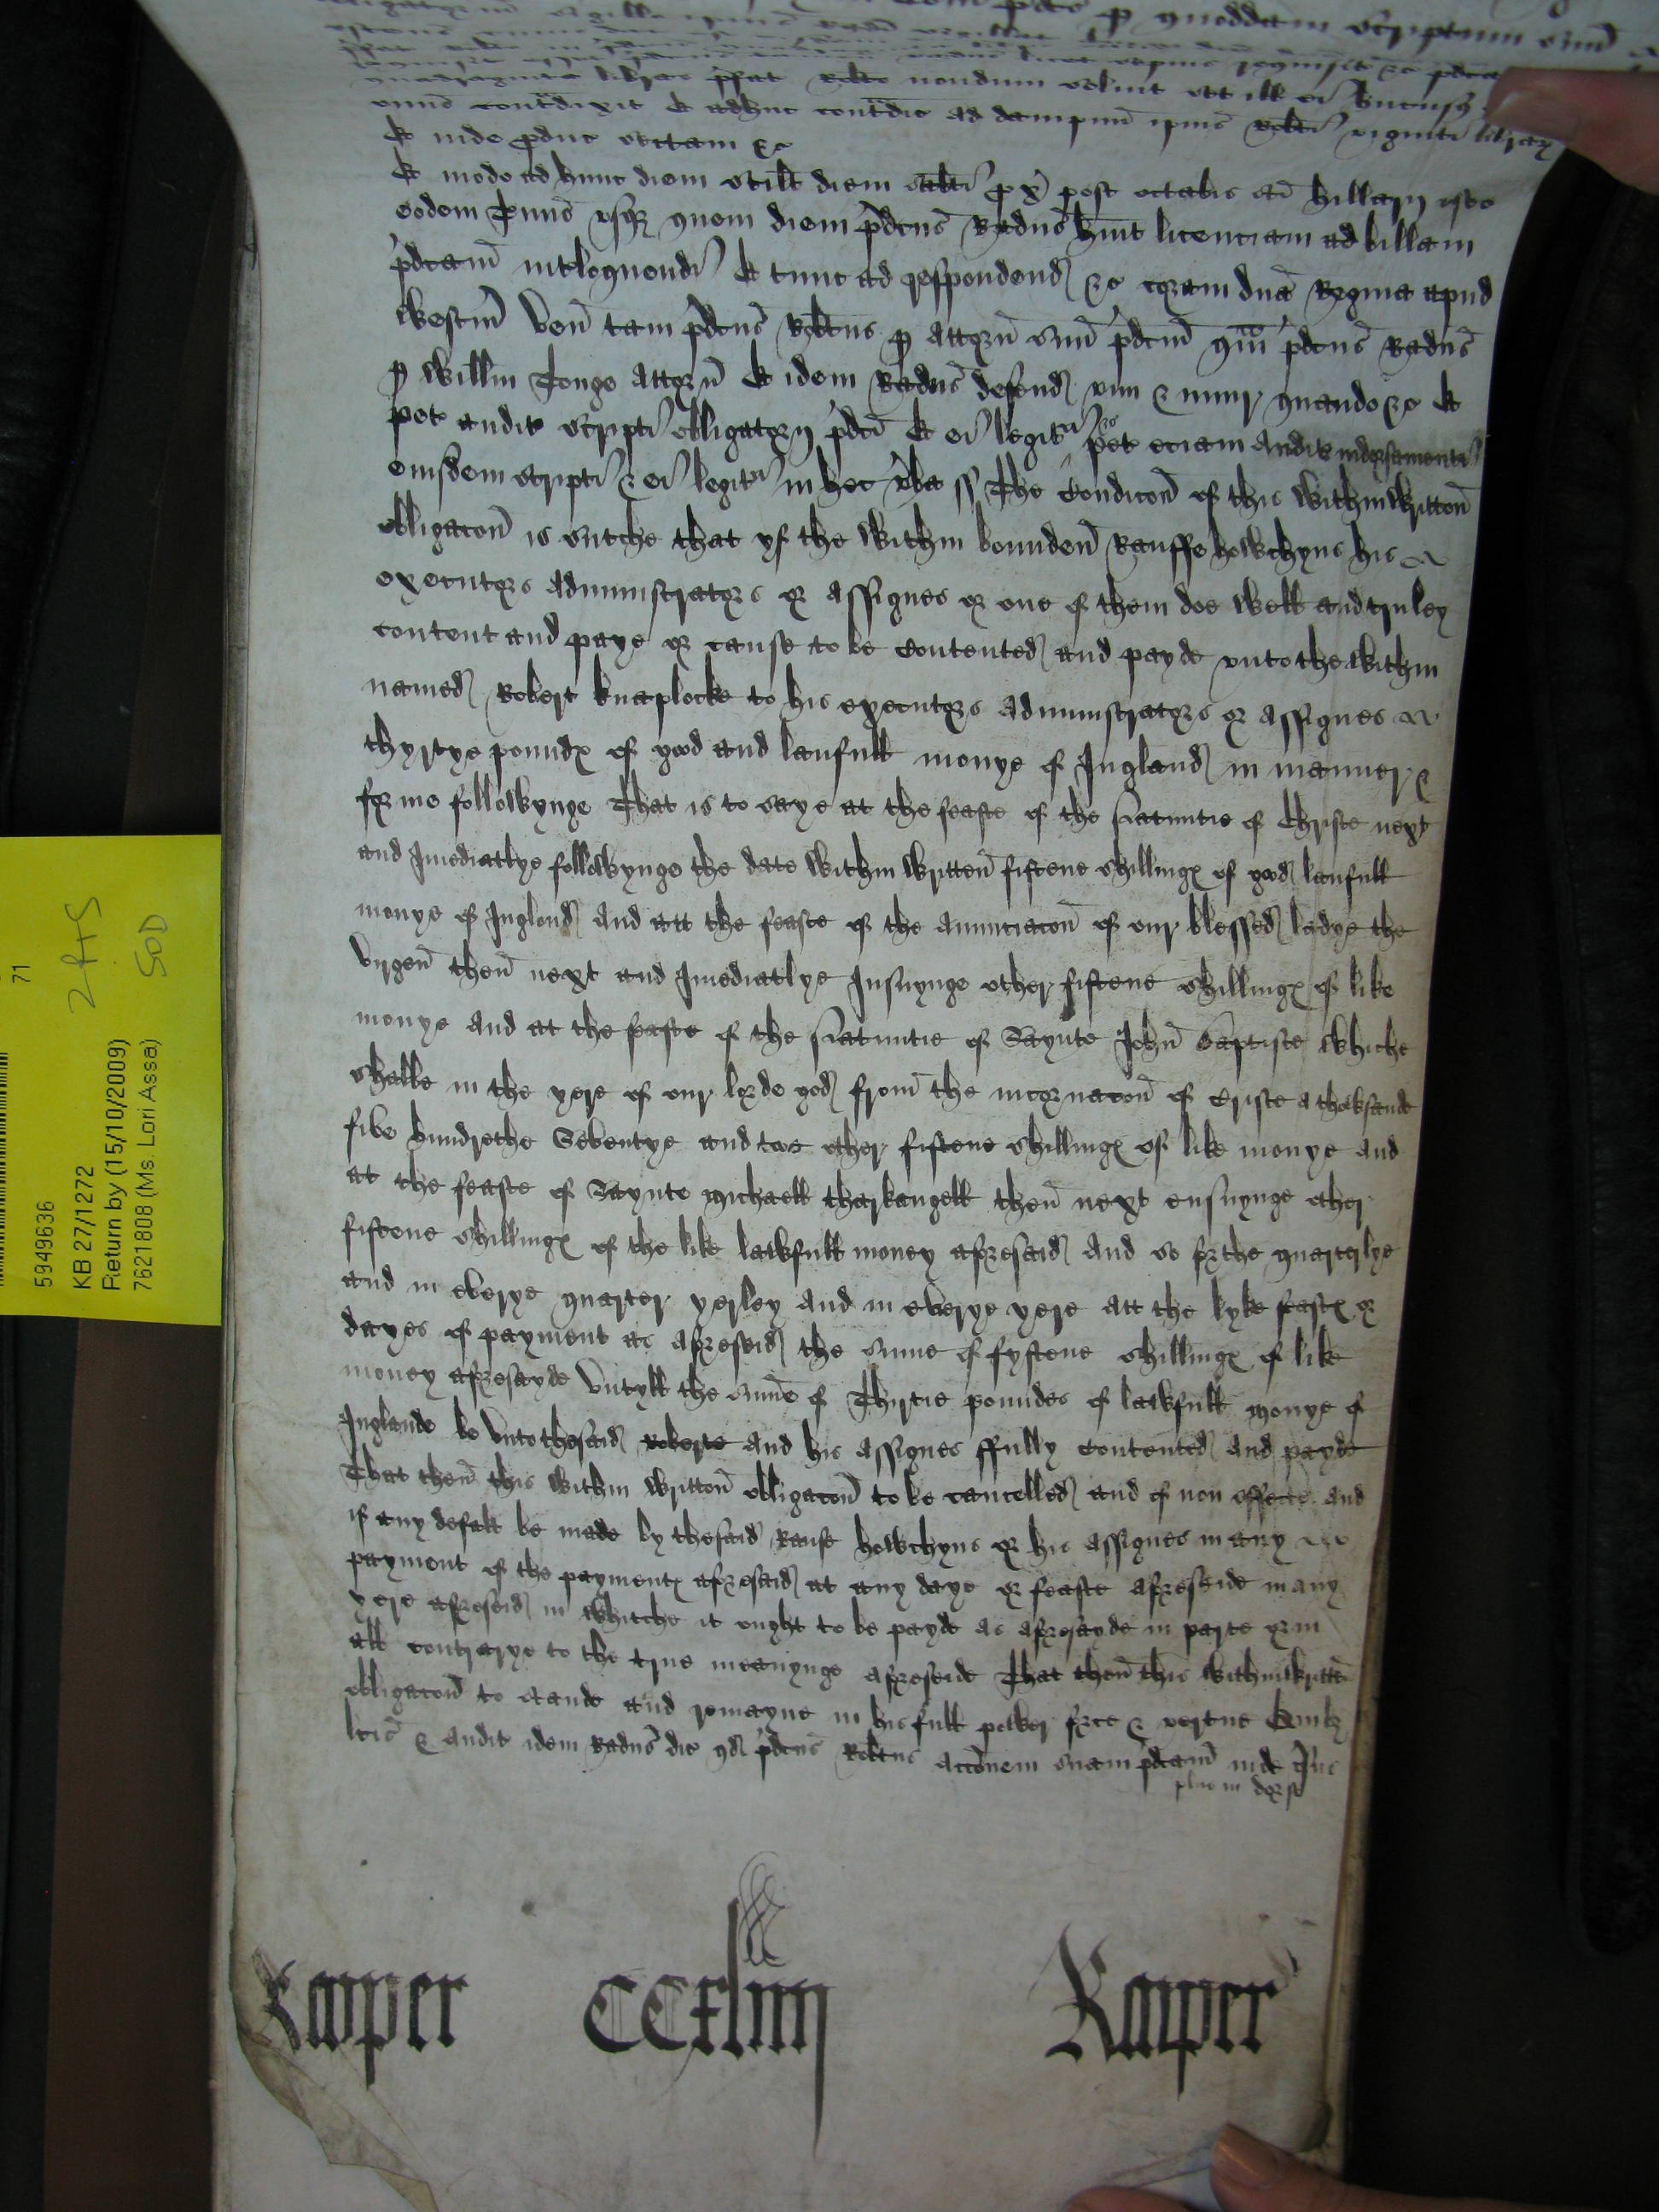 quadraginta libras p̄fat Robto nondum soluit set ill ei hucusq̨
omīo contradixit Et adhuc contradic ad dampnū ip̄ius Robti viginti librar̨
Et inde produc sectam &c
Et modo ad hunc diem scilt diem sabbti px̄ post octabis sci hillarij isto
eodem t̄mino vsq̨ quem diem p̄dcus Radus h̄uit licenciam ad billam
p̄dcam int̄loquendi Et tunc ad respondend &c coram dnā Regina apud
Westm̄ Ven̄ tam p̄dcus Robtus p attorn̄ suū p̄dcm̄ qm̄ p̄dcus Radus
p willm Tonge attorn̄ Et idem Radus defend vim & iniur̨ quando &c Et
pet auditū scripti obligatorij p̄dci Et ei legitr̄ &c pet eciam auditū indorsamenti
eiusdem scripti & ei legitr̄ in hec v̄ba ss The Condicon̄ of this withinwritton̄
obligacon̄ is sutche that yf the within bounden̄ Rauffe howchyns his
executors administrators or assignes or one of them doe well and truley
content and paye or cause to be contented and payde vnto the within
named Robert knaplocke to his executors administrators or assignes
thyrtye poundȝ of good and laufull monye of Ingland in manner &
forme followynge That is to saye at the feaste of the Natiuitie of Christe next
and Imediatlye followynge the date within written̄ fiftene shillingȝ of good laufull
monye of Inglond And att the feaste of the Anunciacon̄ of our blessed ladye the
Virgen̄ then̄ next and Imediatlye Insuynge other fiftene shillingȝ of like
monye and at the feaste of the Natiuitie of Saynte John̄ Baptiste whiche
shalbe in the yere of our lorde god from̄ the incornacon̄ of Criste a thowsande
five hundrethe Seventye and two other fiftene shillingȝ of like monye and
at the feaste of Saynte Michaell tharkangell then̄ next ensuynge other
fiftene shillingȝ of the like lawfull money aforesaid And so forthe quarterlye
and in everye quarter yerley and in everye yere att the lyke feastȝ or
dayes of payment as aforesaid the sume of fyftene shillingȝ of like
money aforesayde Vntyll the sum̄e of Thirtie poundes of lawfull monye of
Inglande be Vnto thesaid Roberte and his assignes ffully contented and payde
That then̄ this within written̄ obligacon̄ to be cancelled and of non effecte and
if any defalt be made by thesaid Raufe howchyns or his assignes in any
payment of the paymentȝ aforesaid at any daye or feaste aforesaide in any
yere aforesaid in whitche it ought to be payde as aforesayde in parte or in
all contrarye to the true meanynge aforesaide That then̄ this withinwritten̄
obligacon̄ to stande and remayne in his full power force & vertue Quibȝ
lcis & audit̄ idem Radus dic qd p̄dcus Robtus accōnem suam p̄dcam inde v̄sus
plus in dorso
Raper CCxliiij Raper
71
2 fts
SOD
5949636
KB 27/1272
Return by (15/10/2009)
7621808 (Ms. Lori Assa)